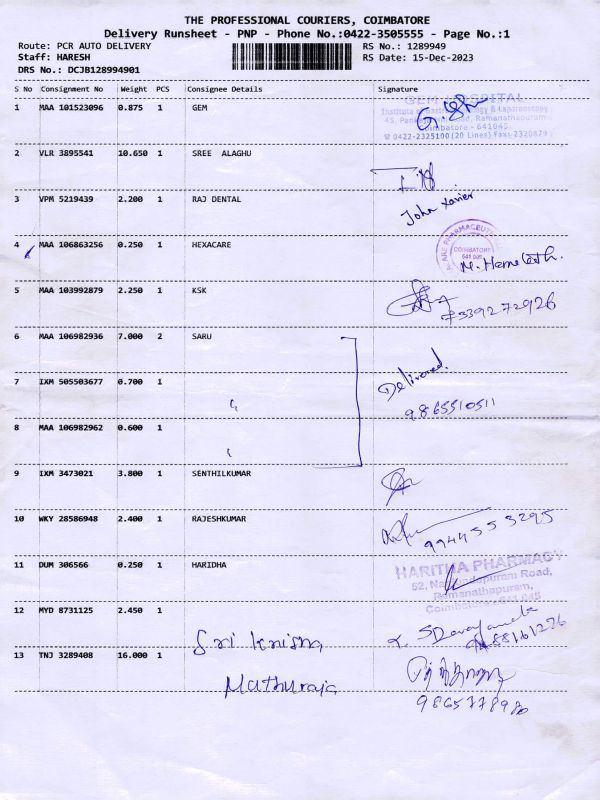 THE PROFESSIONAL COURIERS, COIMBATORE
Delivery Runsheet - PNP - Phone No.:0422-3505555 - Page No.:1
Route: PCR AUTO DELIVERY RS No.: 1289949
Staff: HARESH RS Date: 15-Dec-2023
DRS No.: DCJB128994901
S No Consignment No Weight PCS Consignee Details Signature
GEM HOSPITAL
1 MAA 101523096 0.875 1 GEM
45, Pankaja Mill Road, Ramanathapuram,
Coimbatore - 641045.
0422-2325100 (20 Lines) Fax: 2320879
2 VLR 3895541 10.650 1 SREE ALAGHU
3 VPM 5219439 2.200 1 RAJ DENTAL John Xavier
4 MAA 106863256 0.250 1 HEXACARE COIMBATORE
M. Hemalath.
5 MAA 103992879 2.250 1 KSK
6 MAA 106982936 7.000 2 SARU
7 IXM 505503677 0.700 1 Delivered
9865510511
8 MAA 106982962 0.600 1
9 IXM 3473021 3.800 1 SENTHILKUMAR
10 WKY 28586948 2.400 1 RAJESHKUMAR
9944553295
11 DUM 306566 0.250 1 HARIDHA HARITHA PHARMACY
Road,
Ramanathapuram,
12 MYD 8731125 2.450 1
Sri krisna
13 TNJ 3289408 16.000 1
Mathuraja